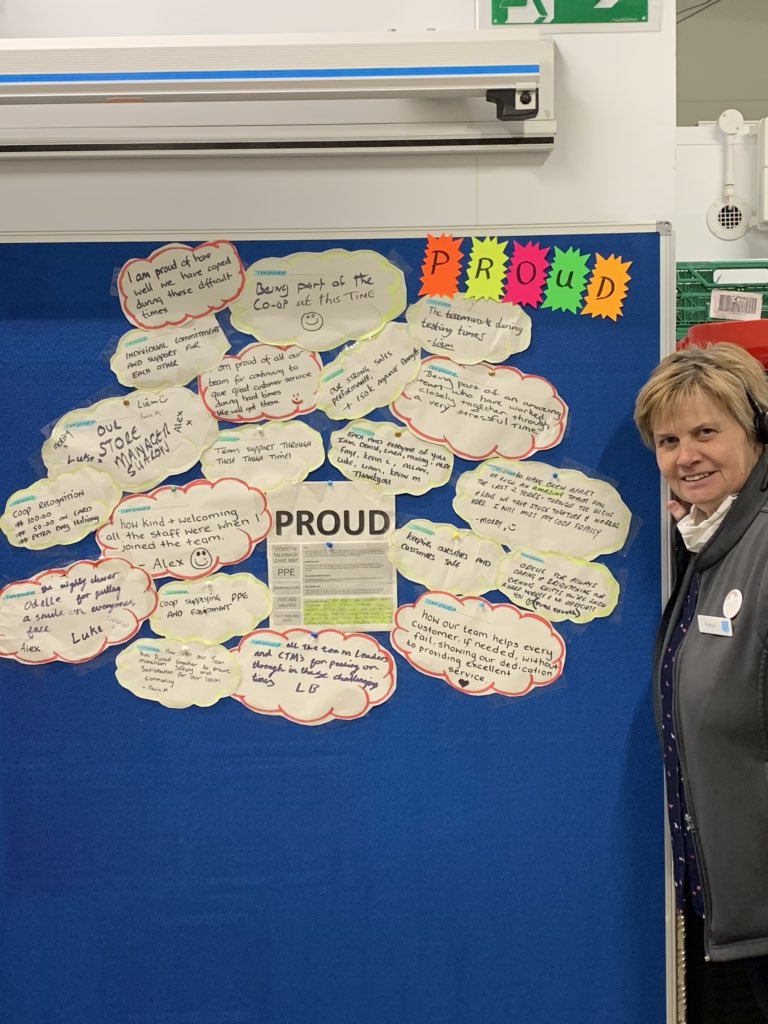 PROUD
I am proud of how
well we have coped
during these difficult
times
I am proud of
BEING PART OF THE
CO-OP AT THIS TIME
The teamwork during
testing times
- Liam
INDIVIDUAL COMMITMENT
AND SUPPORT FOR
EACH OTHER
I am proud of all our
team for continuing to
give great customer service
during hard times
We will get there
OUR STRONG SALES
PERFORMANCE,
+ 150K against Budget
Being part of an amazing
team who have worked
closely together through
a very stressful time
Liam
Kevin M
OUR
STORE
MANAGER
Luke
Alex
TEAM SUPPORT THROUGH
THESE TOUGH TIMES
EACH AND EVERYONE OF YOU
LUKE, LIAM, KEVIN M
THANKYOU
TO HAVE BEEN APART
OF SUCH AN AMAZING TEAM FOR
THE LAST 2 YEARS - THROUGH THE HIGHS
& LOWS WE HAVE STUCK TOGETHER & WORKED
HARD. I WILL MISS MY COOP FAMILY
COOP RECOGNITION
# 100.00
# 50.00 ON CARD
# EXTRA DAY Holiday
how kind + welcoming
all the staff were when I
joined the team.
- Alex
PROUD
COVID 19
TALKBACK
CHAT MAT
PPE
KEEPING OURSELVES AND
CUSTOMERS SAFE
ODELLE FOR ALWAYS
CARING & BRIGHTENING OUR
the mighty cleaner
Odelle for putting
a smile on everyones
face
Alex
Luke
COOP SUPPLYING PPE
AND EQUIPMENT
how our team helps every
customer, if needed, without
fail, showing our dedication
to providing excellent
service.
How our team
has pulled together to ensure
Satisfaction for our local
community
- Kevin M
all the team Leaders
and CTM's for pushing on
through in these challenging
times
LB